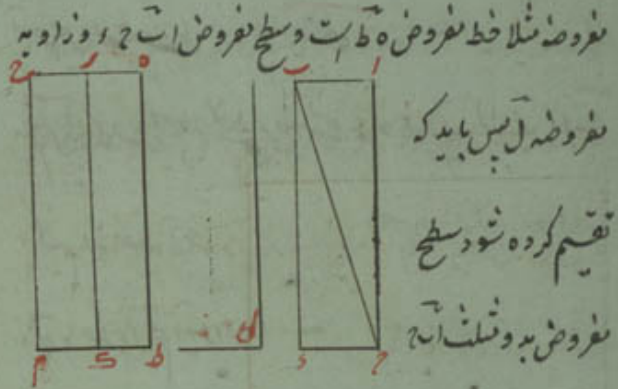 مفروضه مثلا خط مفروض ه ط است و سطح مفروض ا ب ح ء و زاویه
مفروضه ل پس باید که
تقسیم کرده شود سطح
مفروض بدو مثلث ا ب ح
ا
ب
ه
ر
ح
ح
ء
ل
ط
ی
م